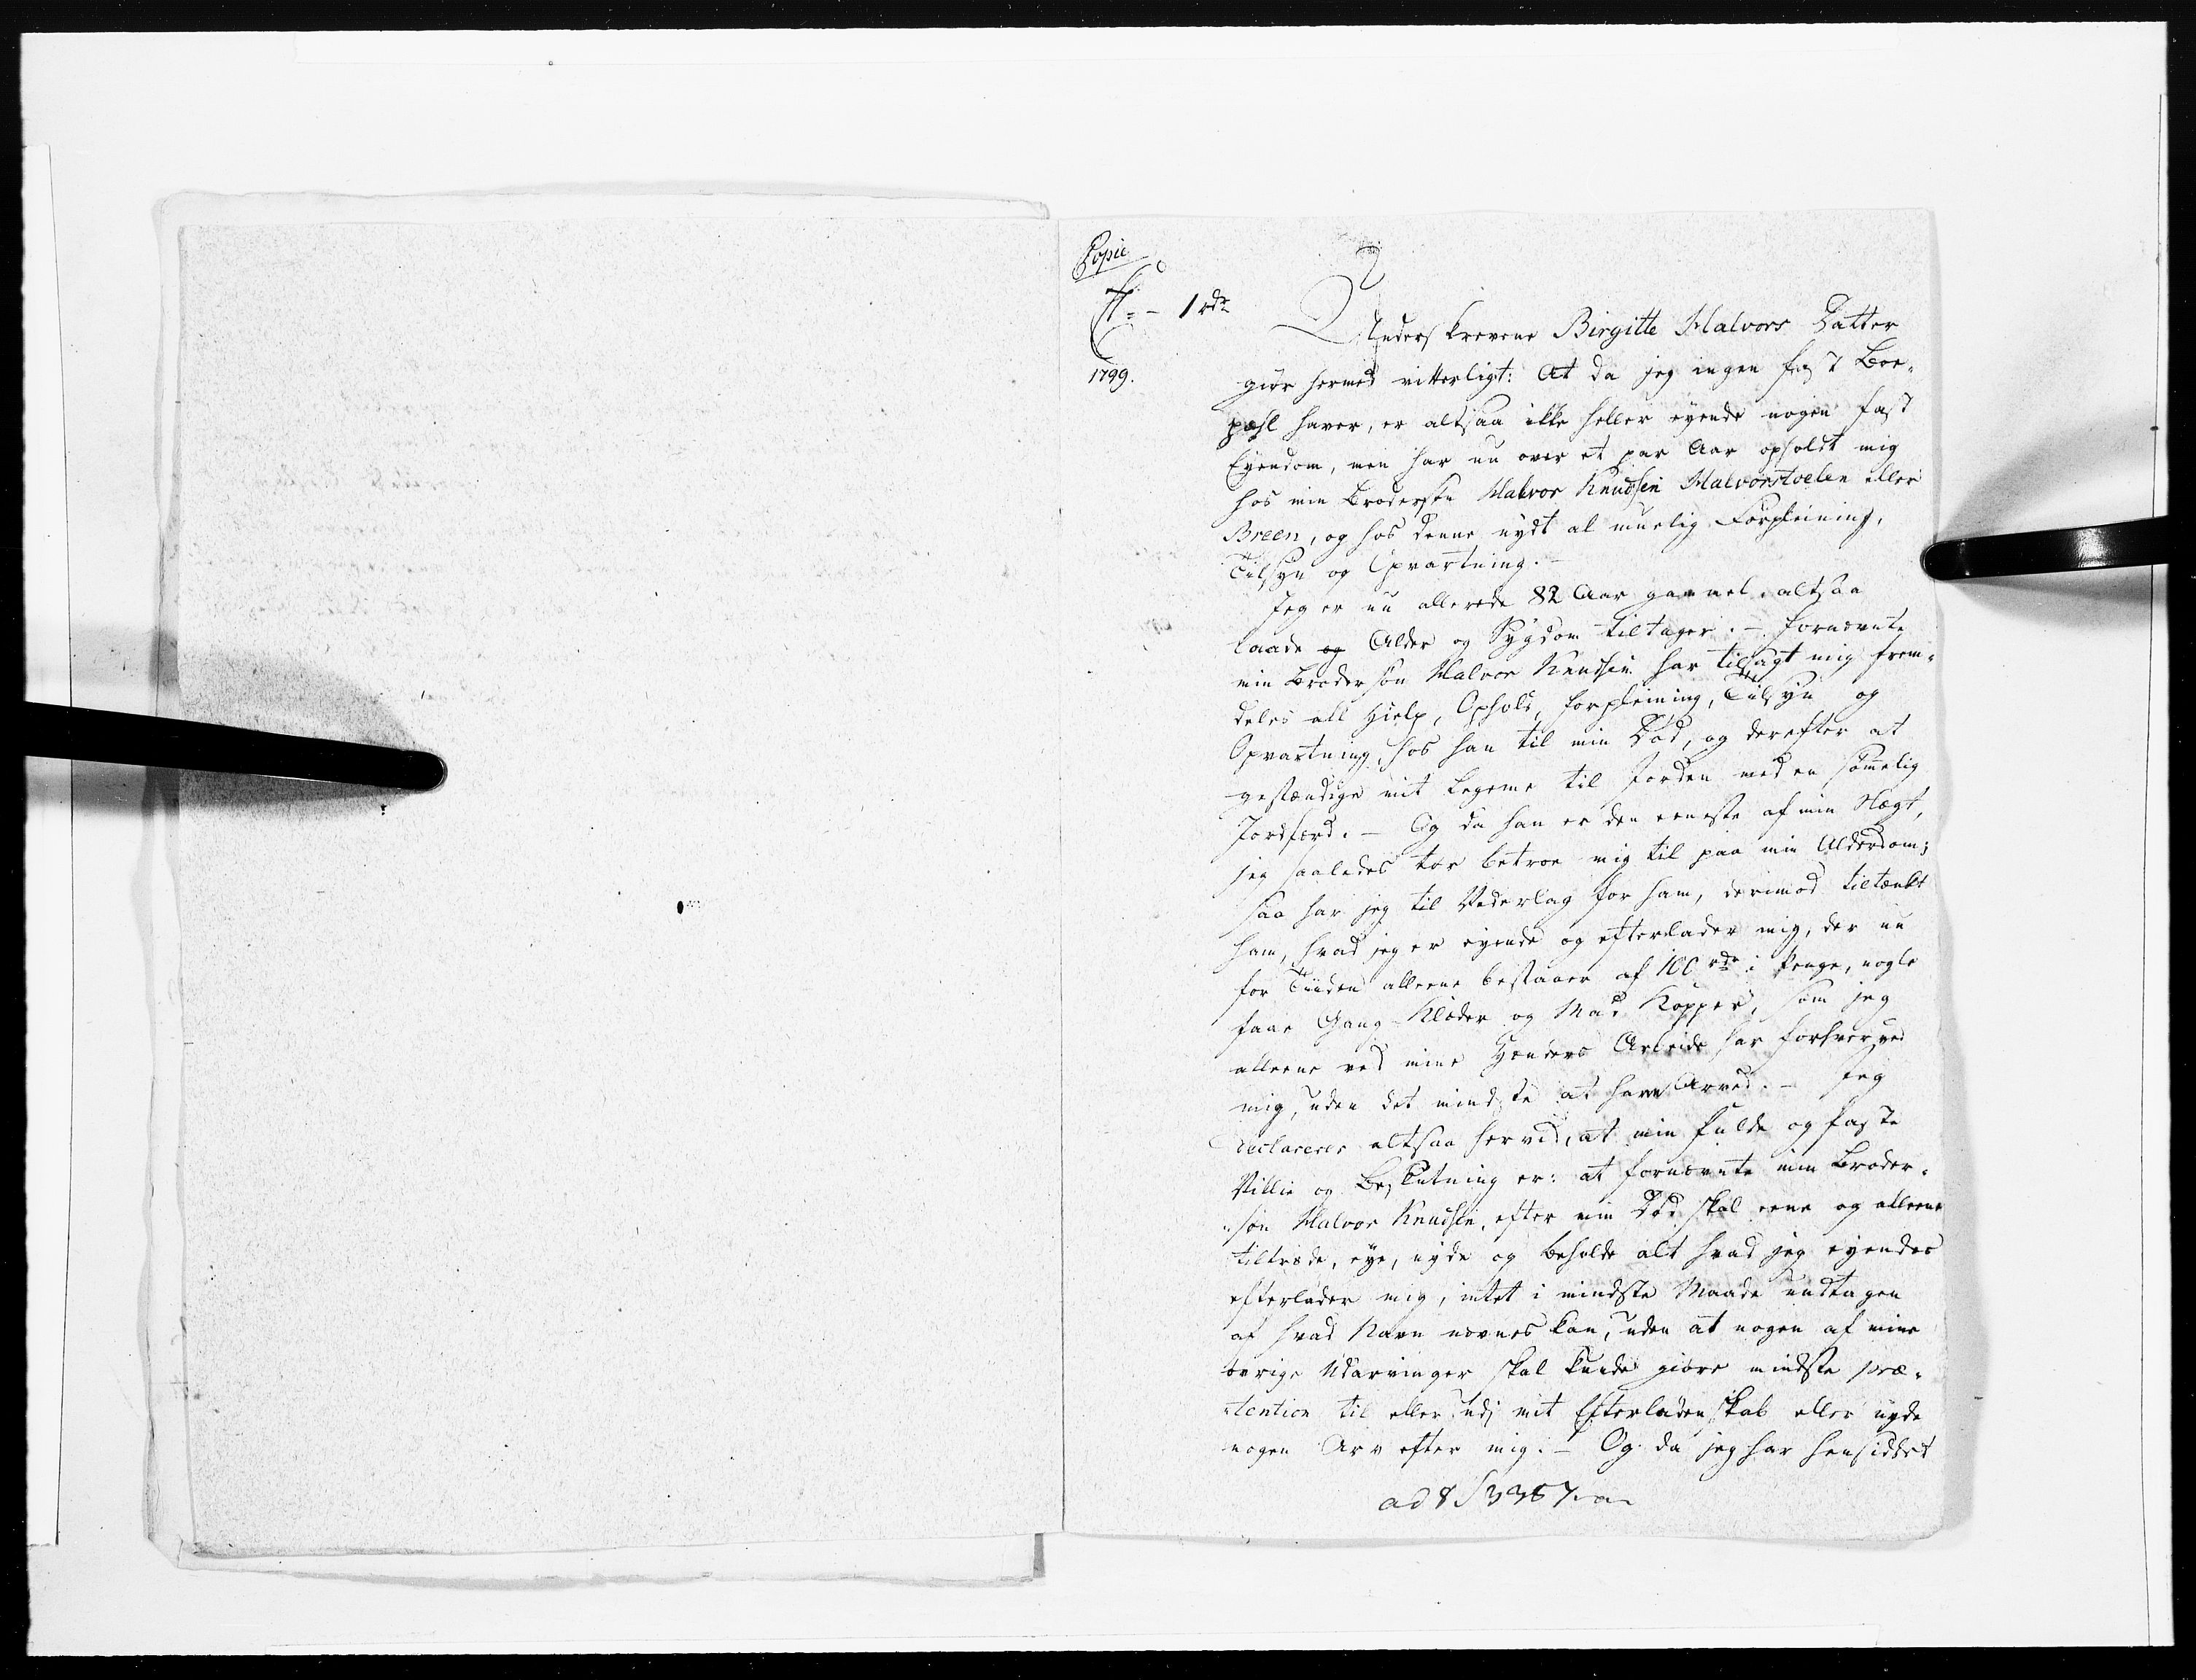 Copie
1 rdr
1799.
Underskrevene Birgitte Halvors Datter
giør hermed vitterligt: At da jeg ingen fast Boe-
pæhl haver, er altsaa ikke heller eyende nogen fast
Eyendom, men har nu over et par Aar opholdt mig
hos min Brodersøn Halvor Knudsen Halvorstoelen eller
Breen, og hos denne nydt al muelig Forpleining,
Tilsyn og Opvartning. -
Jeg er nu allerede 82 Aar gammel, altsaa
baade og Alder og Sygdom tiltager. - fornevnte
min Brodersøn Halvor Knudsen har tilsagt mig frem-
deles all Hielp, Ophold, forpleining, Tilsyn og
Opvartning, hos han til min Død, og derefter at
bestændige mit Legeme til Jorden med en sømelig
Jordfærd. - Og da han er den eeneste af min Slægt,
jeg saaledes tør betroe mig til paa min Alderdom;
saa har jeg til Vederlag for ham, derimod tiltænkt
ham, hvad jeg er eyende og efterlader mig, der nu
for Tiiden alleene bestaaer af 100 rdr i Penge, nogle
faae Gang-Klæder og Mad Kopper, som jeg
alleene ved mine Henders Arbeide har forhvervet
mig, uden det mindste at have Arved. - Jeg
declarerer altsaa herved, at min fulde og faste
Villie og Beslutning er: at fornevnte min Broder-
søn Halvor Knudsen, efter min Død skal eene og alleene
tiltræde, eye, nyde og beholde alt hvad jeg eyendes
efterlader mig, intet i mindste Maade undtagen
af hvad Navn nevnes kan, uden at nogen af mine
øvrige Udarvinger skal kunde giøre mindste præ-
tention til eller udi mit Efterladenskab eller nyde
nogen Arv efter mig. - Og da jeg har hensiddet